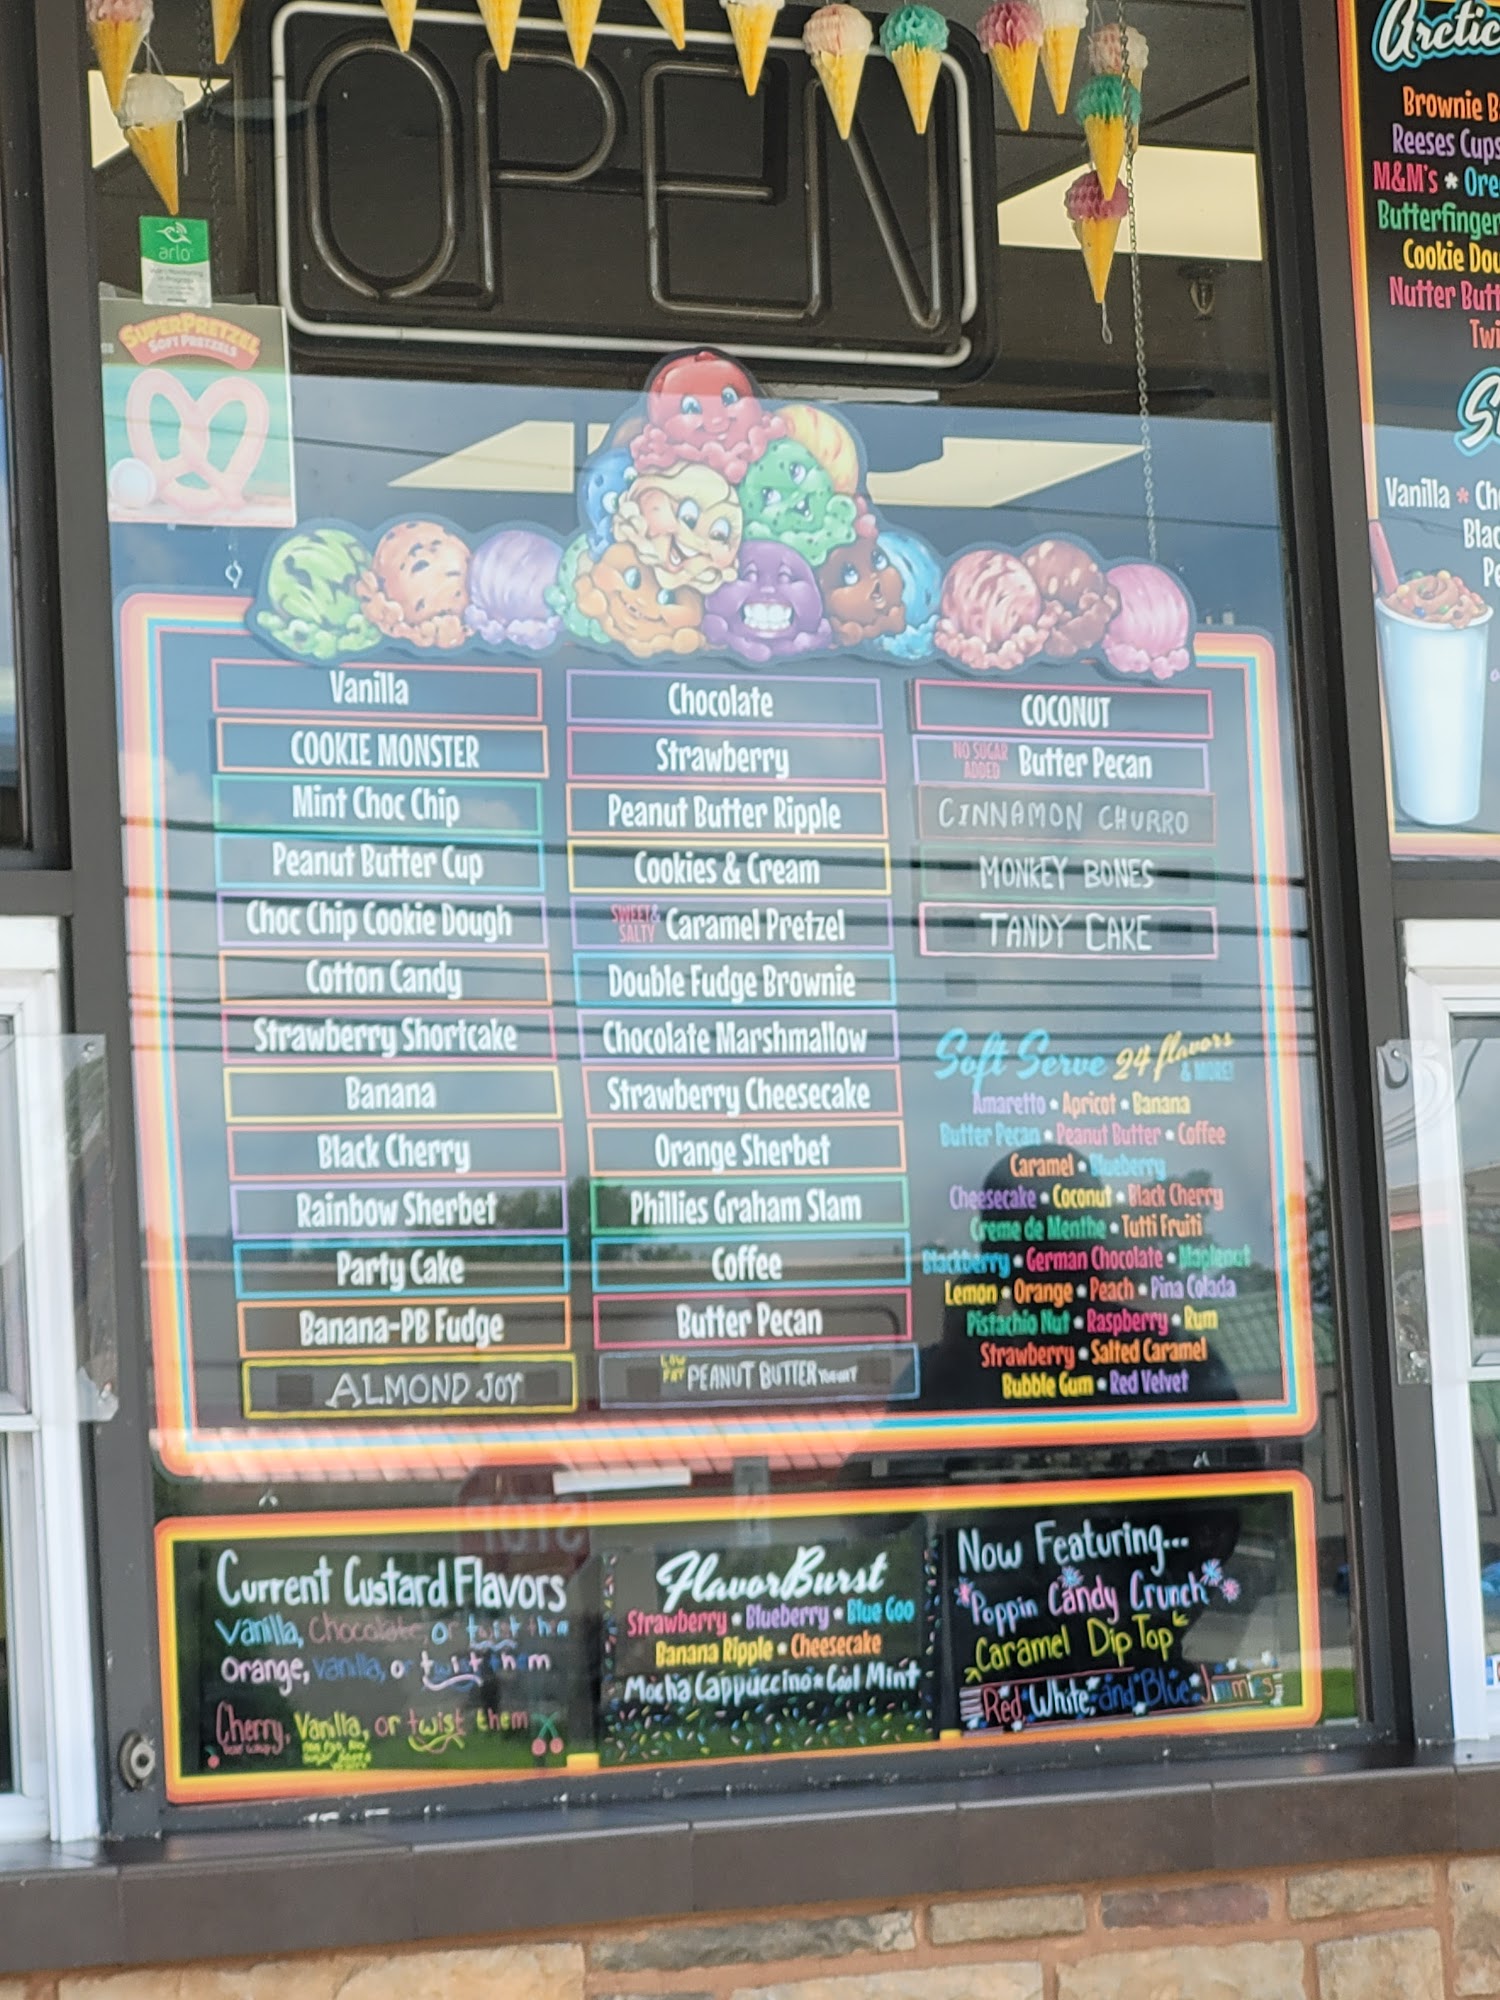 OPEN
arlo
SUPERPRETZEL
SOFT PRETZELS
Vanilla
COOKIE MONSTER
Mint Choc Chip
Peanut Butter Cup
Choc Chip Cookie Dough
Cotton Candy
Strawberry Shortcake
Banana
Black Cherry
Rainbow Sherbet
Party Cake
Banana-PB Fudge
ALMOND JOY
Chocolate
Strawberry
Peanut Butter Ripple
Cookies & Cream
SWEET & SALTY Caramel Pretzel
Double Fudge Brownie
Chocolate Marshmallow
Strawberry Cheesecake
Orange Sherbet
Phillies Graham Slam
Coffee
Butter Pecan
LOW FAT PEANUT BUTTER YOGURT
COCONUT
NO SUGAR ADDED Butter Pecan
CINNAMON CHURRO
MONKEY BONES
TANDY CAKE
Soft Serve 24 flavors & MORE!
Amaretto • Apricot • Banana
Butter Pecan • Peanut Butter • Coffee
Caramel • Blueberry
Cheesecake • Coconut • Black Cherry
Creme de Menthe • Tutti Fruiti
Blackberry • German Chocolate • Maplenut
Lemon • Orange • Peach • Pina Colada
Pistachio Nut • Raspberry • Rum
Strawberry • Salted Caramel
Bubble Gum • Red Velvet
Current Custard Flavors
Vanilla, Chocolate, or twist them
Orange, vanilla, or twist them
Cherry, Vanilla, or twist them
FlavorBurst
Strawberry • Blueberry • Blue Goo
Banana Ripple • Cheesecake
Mocha Cappuccino • Cool Mint
Now Featuring...
Poppin Candy Crunch
Caramel Dip Top
Red, White, and Blue Jimmies
Arctic
Brownie B
Reeses Cups
M&M's * Ore
Butterfinger
Cookie Dou
Nutter Butt
Twi
S
Vanilla * Ch
Blac
Pe
STOP